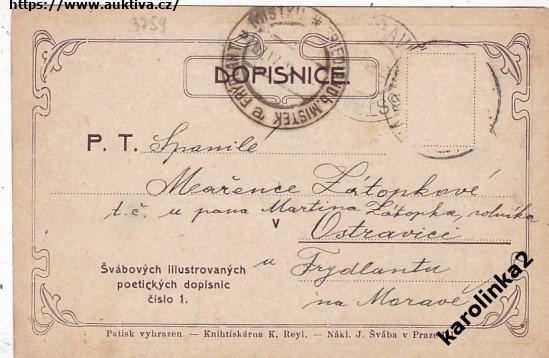 https://www.auktiva.cz/
3759
DOPISNICE.
P. T. Spanilé
Mařence Zátopkové
t. č. u pana Martina Zátopka, rolníka
v
Ostravici
u Frydlantu
na Moravě
Švábových illustrovaných
poetických dopisnic
číslo 1.
Patisk vyhrazen. — Knihtiskárna K. Reyl. — Nákl. J. Švába v Praze
karolinka2